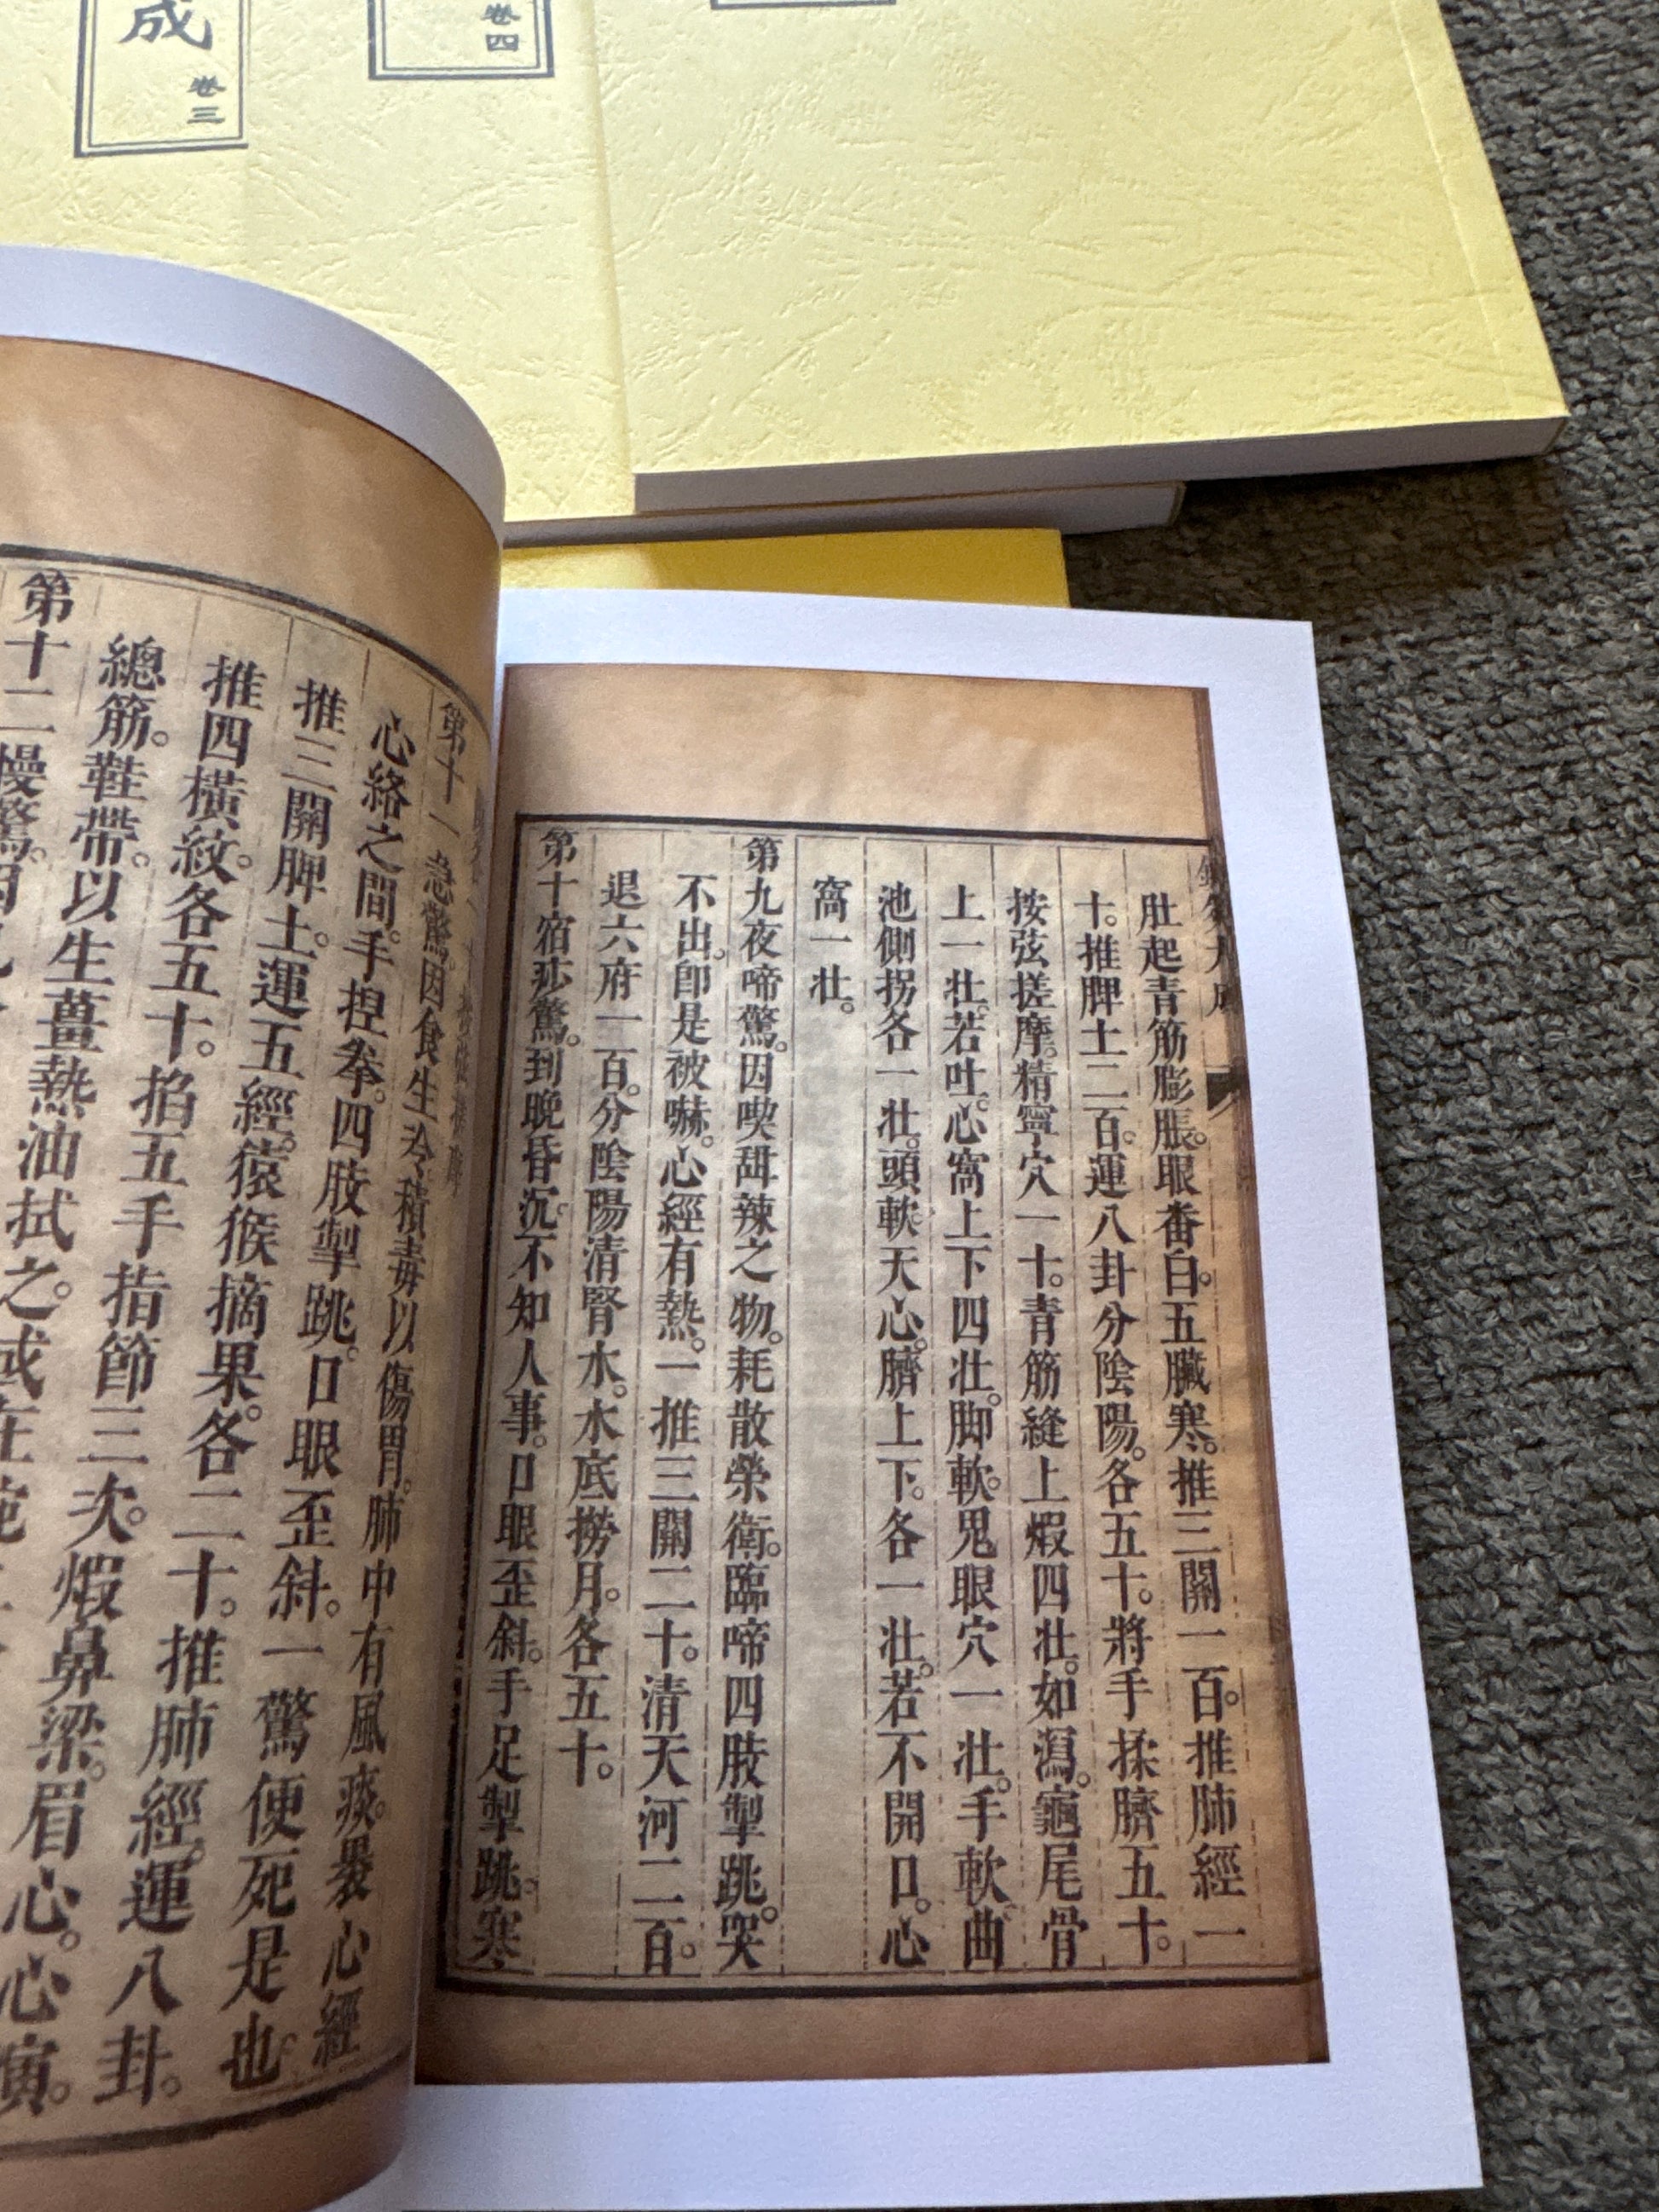 成
卷三
卷四
肚起青筋膨脹。眼番白。五臟寒。推三關一百。推肺經一
十。推脾土二百。運八卦分陰陽。各五十。將手揉臍五十。
按弦搓摩。精寧穴一十。青筋縫上煆四壯。如瀉。龜尾骨
上一壯。若吐。心窩上下四壯。脚軟。鬼眼穴一壯。手軟。曲
池側拐各一壯。頭軟。天心。臍上下。各一壯。若不開口。心
窩一壯。
第九夜啼驚。因喫甜辣之物。耗散榮衛。臨啼四肢掣跳。哭
不出。卽是被嚇。心經有熱。一推三關二十。清天河二百。
退六府一百。分陰陽清腎水。水底撈月。各五十。
第十宿痧驚。到晚昏沉。不知人事。口眼歪斜。手足掣跳。寒
第十一急驚。因食生冷積毒以傷胃。肺中有風痰。裹心經
心絡之間。手捏拳。四肢掣跳。口眼歪斜。一驚便死是也。
推三關脾土。運五經。猿猴摘果。各二十。推肺經。運八卦。
推四橫紋。各五十。掐五手指節三次。煆鼻梁。眉心。心演。
總筋。鞋帶。以生薑熱油拭之。或在
第十二慢驚。因